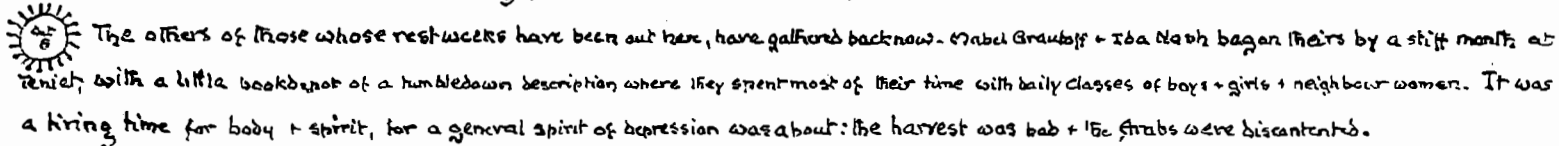 Apr 6 The others of those whose rest weeks have been out here, have gathered back now. Mabel Grautoff + Ida Nash began theirs by a stiff month at
Teniet, with a little bookdepot of a tumbledown description where they spent most of their time with daily classes of boys + girls + neighbour women. It was
a tiring time for body + spirit, for a general spirit of depression was about: the harvest was bad + the Arabs were discontented.